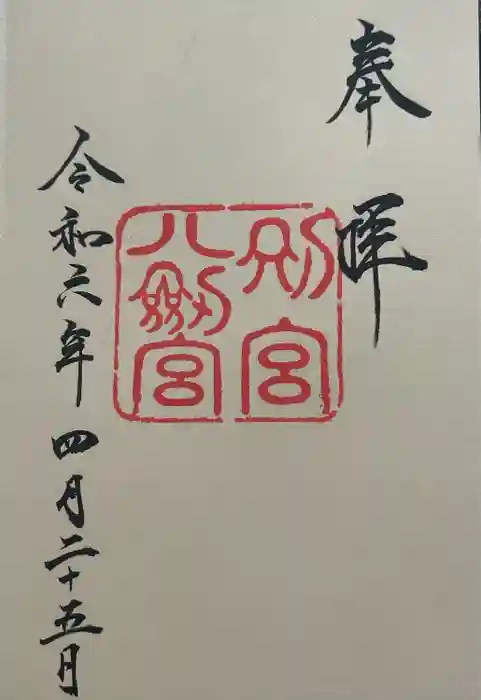 奉拝
別宮
八劔宮
令和六年四月二十五日